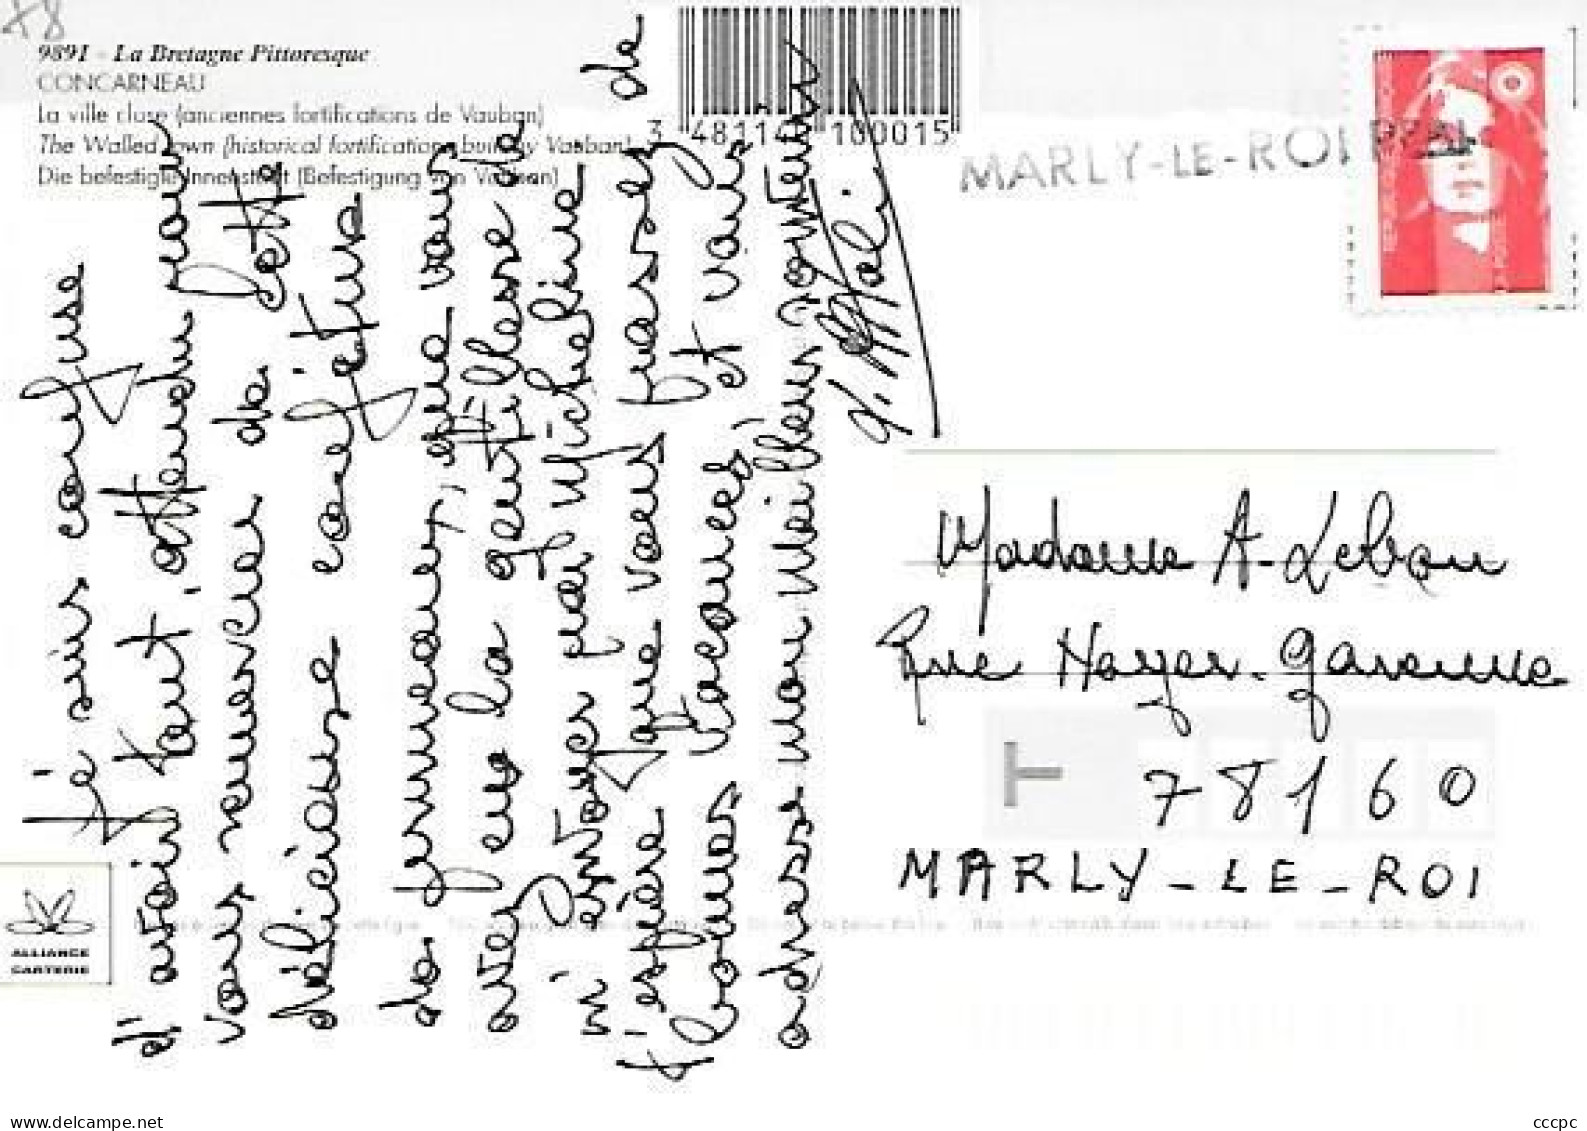 9891 - La Bretagne Pittoresque
CONCARNEAU
La ville close (anciennes fortifications de Vauban)
The Walled Town (historical fortifications built by Vauban)
Die befestigte Innenstadt (Befestigung von Vauban)
3 481 100015
MARLY-LE-ROI PPAL
Je suis confuse
d'avoir tant attendu pour
vous remercier de cette
délicieuse confiture
de pruneaux, que vous
avez eu la gentillesse de
m'envoyer par Micheline
J'espère que vous passez de
bonnes vacances, et vous
adresse mon meilleur souvenir
Madame A. Lebon
Rue Noyer-Garenne
T 78160
MARLY-LE-ROI
ALLIANCE
CARTERIE
www.delcampe.net
cccpc